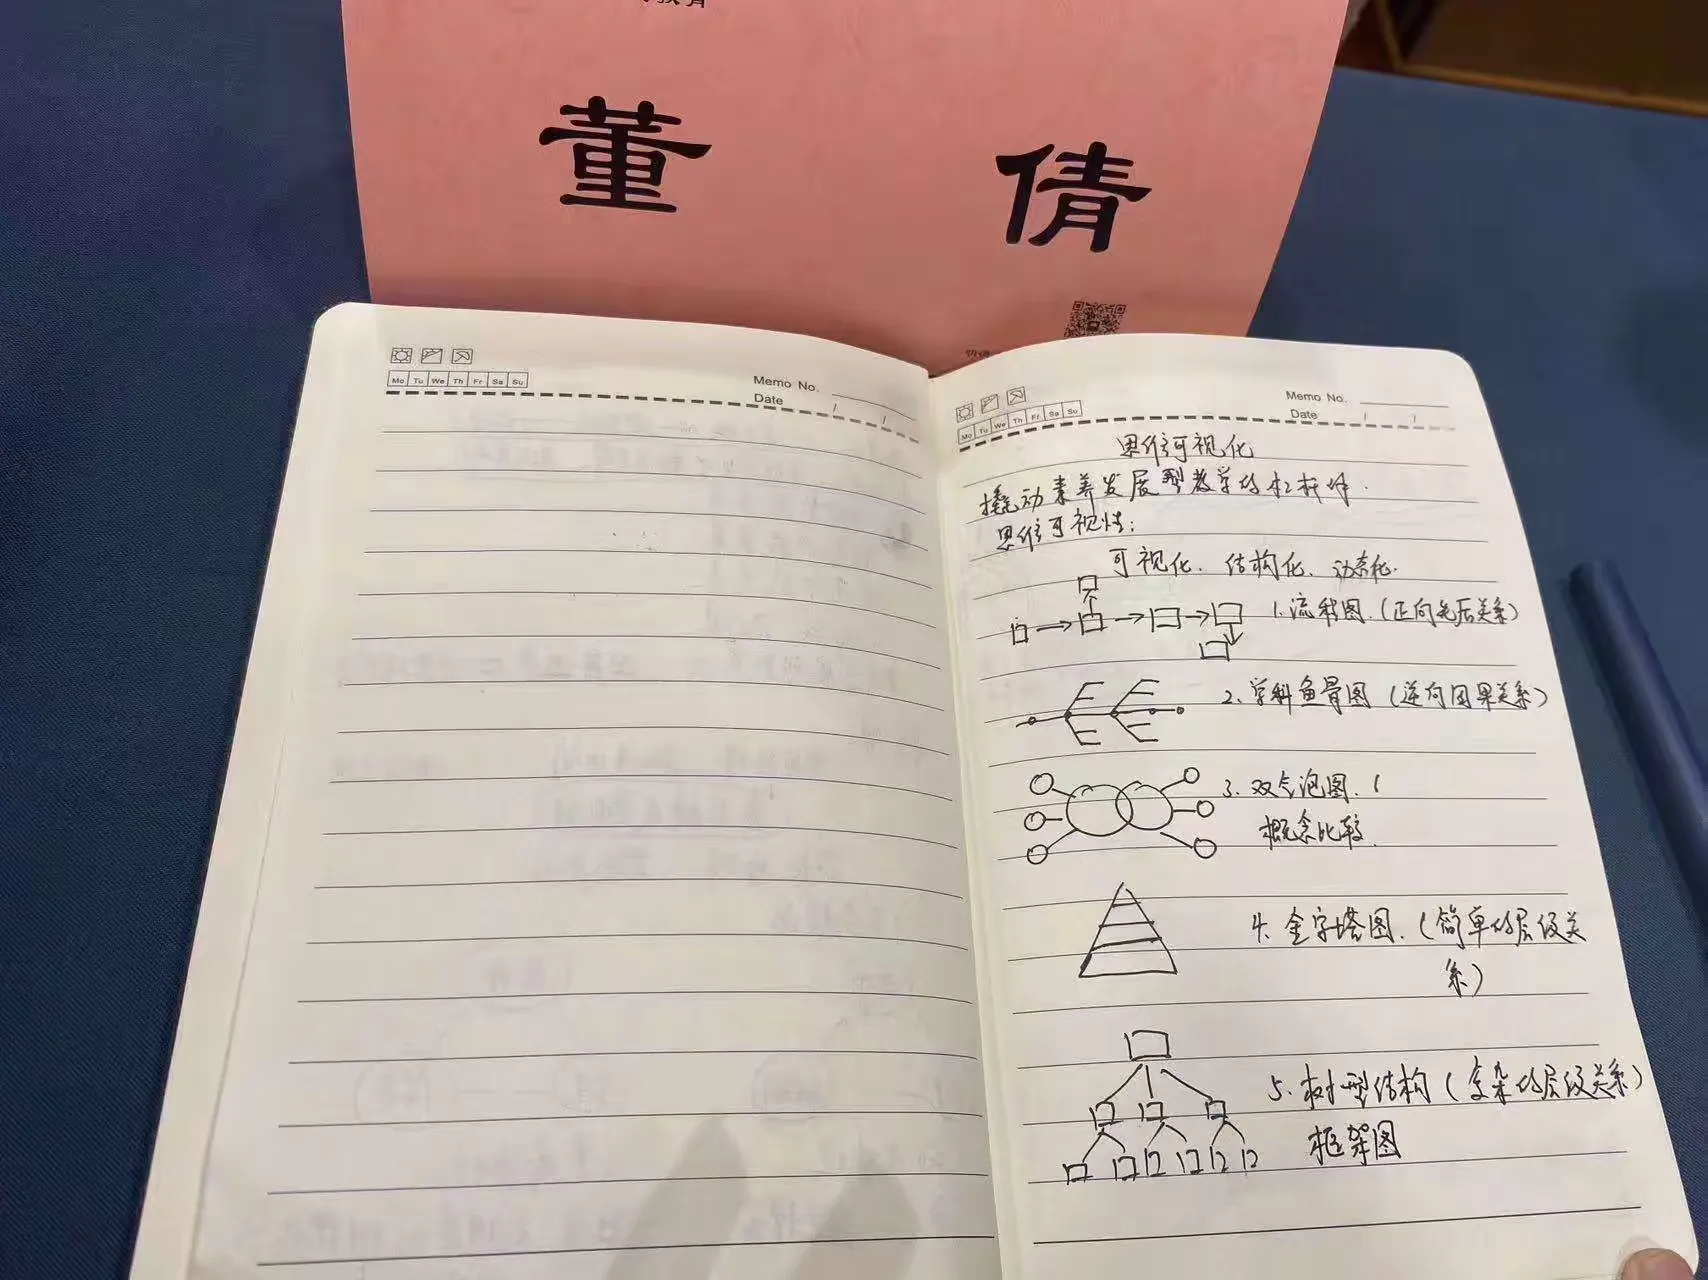 教育
董 倩
Mo Tu We Th Fr Sa Su
Memo No.
Date / /
Mo Tu We Th Fr Sa Su
Memo No.
Date / /
思维可视化
撬动素养发展型教学的杠杆
思维可视性:
可视化、结构化、动态化.
1.流程图.(正向先后关系)
2.学科鱼骨图(逆向因果关系)
3.双气泡图.(
概念比较.
4.金字塔图.(简单的层级关
系)
5.树型结构(复杂的层级关系)
框架图